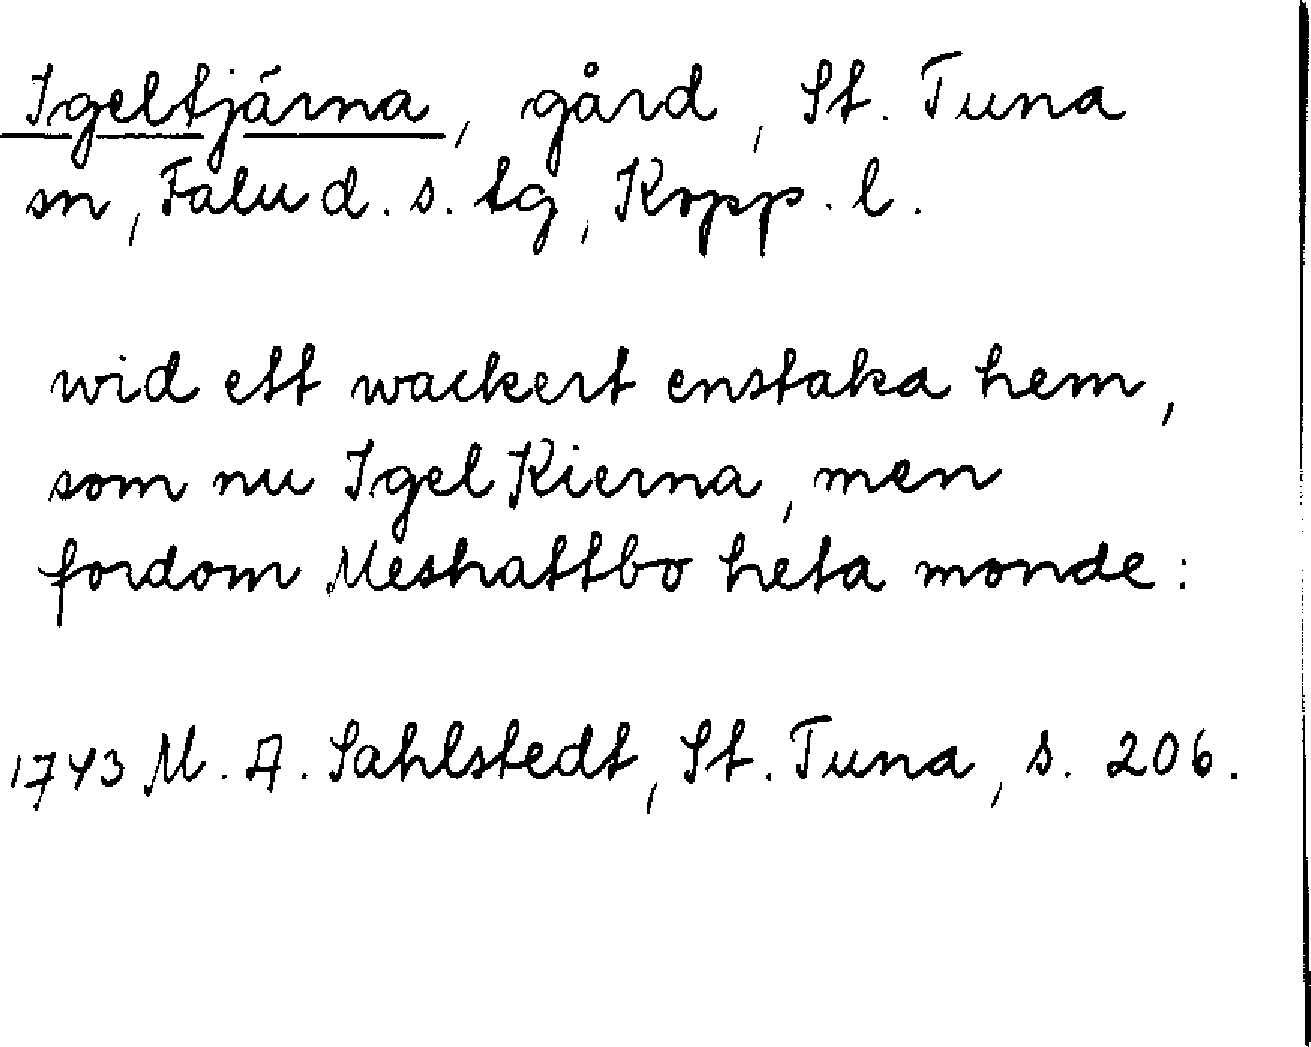 Igeltjärna, gård, St. Tuna
sn, Falu d. s. tg, Kopp. l.
wid ett wackert enstaka hem,
som nu Igel Kierna, men
fordom Meshattbo heta monde:
1743 M. A. Sahlstedt, St. Tuna, s. 206.